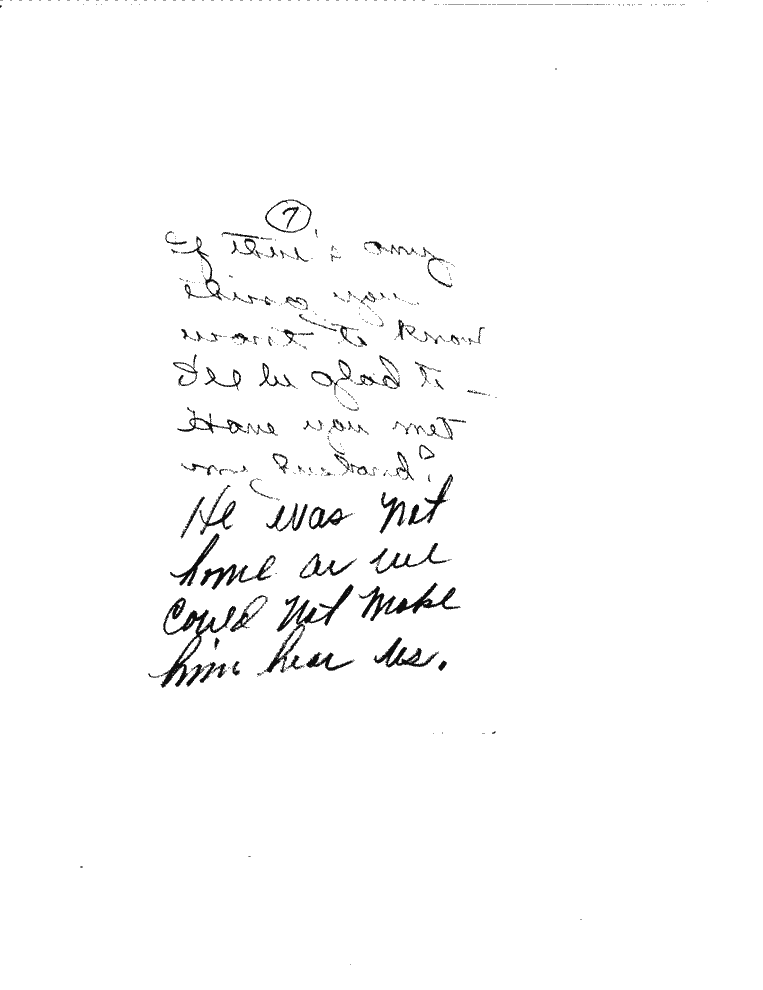 7
If their's any
thing you
want to know
I'll be glad to –
Have you met
my husband?
He was not
home or we
could not make
him hear us.